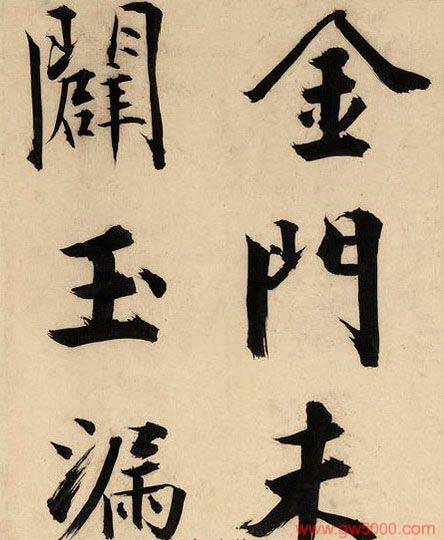 金門未
闢玉漏
www.gw5000.com